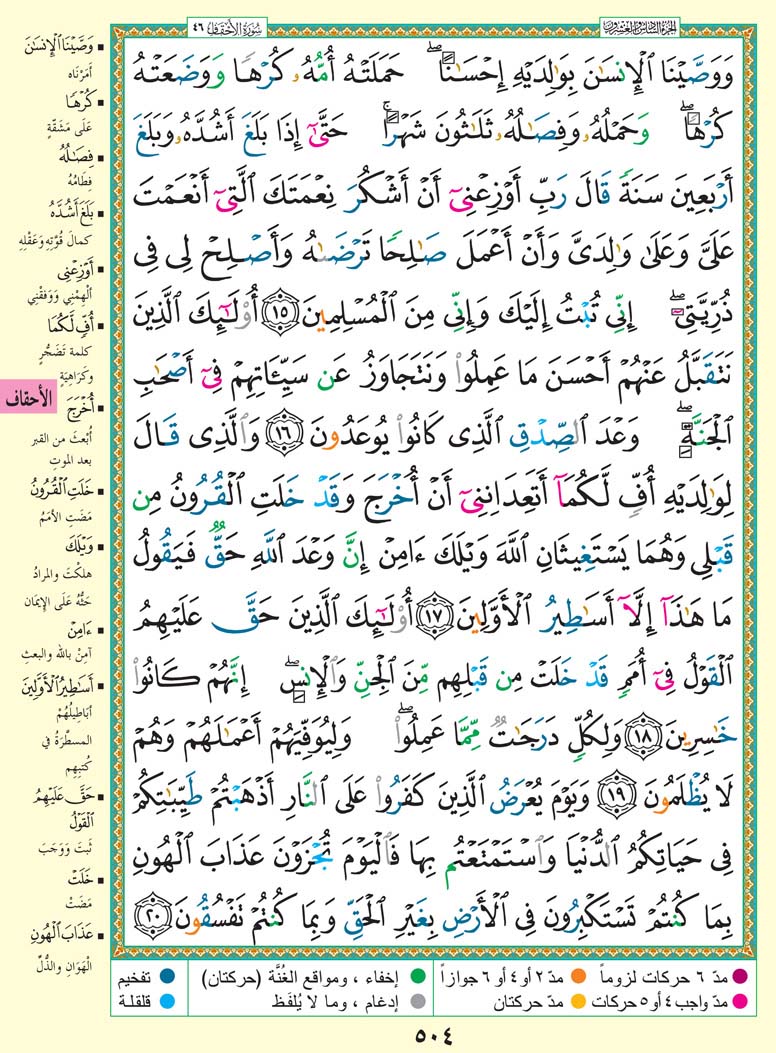 الجزء السادس والعشرون
سُورَةُ الأَحْقَاف ٤٦
وَوَصَّيْنَا ٱلْإِنسَٰنَ بِوَٰلِدَيْهِ إِحْسَٰنًاۖ حَمَلَتْهُ أُمُّهُۥ كُرْهًا وَوَضَعَتْهُ
كُرْهًاۖ وَحَمْلُهُۥ وَفِصَٰلُهُۥ ثَلَٰثُونَ شَهْرًاۚ حَتَّىٰٓ إِذَا بَلَغَ أَشُدَّهُۥ وَبَلَغَ
أَرْبَعِينَ سَنَةً قَالَ رَبِّ أَوْزِعْنِىٓ أَنْ أَشْكُرَ نِعْمَتَكَ ٱلَّتِىٓ أَنْعَمْتَ
عَلَىَّ وَعَلَىٰ وَٰلِدَىَّ وَأَنْ أَعْمَلَ صَٰلِحًا تَرْضَىٰهُ وَأَصْلِحْ لِى فِى
ذُرِّيَّتِىٓۖ إِنِّى تُبْتُ إِلَيْكَ وَإِنِّى مِنَ ٱلْمُسْلِمِينَ ١٥ أُو۟لَٰٓئِكَ ٱلَّذِينَ
نَتَقَبَّلُ عَنْهُمْ أَحْسَنَ مَا عَمِلُوا۟ وَنَتَجَاوَزُ عَن سَيِّـَٔاتِهِمْ فِىٓ أَصْحَٰبِ
ٱلْجَنَّةِۖ وَعْدَ ٱلصِّدْقِ ٱلَّذِى كَانُوا۟ يُوعَدُونَ ١٦ وَٱلَّذِى قَالَ
لِوَٰلِدَيْهِ أُفٍّ لَّكُمَآ أَتَعِدَانِنِىٓ أَنْ أُخْرَجَ وَقَدْ خَلَتِ ٱلْقُرُونُ مِن
قَبْلِى وَهُمَا يَسْتَغِيثَانِ ٱللَّهَ وَيْلَكَ ءَامِنْ إِنَّ وَعْدَ ٱللَّهِ حَقٌّ فَيَقُولُ
مَا هَٰذَآ إِلَّآ أَسَٰطِيرُ ٱلْأَوَّلِينَ ١٧ أُو۟لَٰٓئِكَ ٱلَّذِينَ حَقَّ عَلَيْهِمُ
ٱلْقَوْلُ فِىٓ أُمَمٍ قَدْ خَلَتْ مِن قَبْلِهِم مِّنَ ٱلْجِنِّ وَٱلْإِنسِۖ إِنَّهُمْ كَانُوا۟
خَٰسِرِينَ ١٨ وَلِكُلٍّ دَرَجَٰتٌ مِّمَّا عَمِلُوا۟ۖ وَلِيُوَفِّيَهُمْ أَعْمَٰلَهُمْ وَهُمْ
لَا يُظْلَمُونَ ١٩ وَيَوْمَ يُعْرَضُ ٱلَّذِينَ كَفَرُوا۟ عَلَى ٱلنَّارِ أَذْهَبْتُمْ طَيِّبَٰتِكُمْ
فِى حَيَاتِكُمُ ٱلدُّنْيَا وَٱسْتَمْتَعْتُم بِهَا فَٱلْيَوْمَ تُجْزَوْنَ عَذَابَ ٱلْهُونِ
بِمَا كُنتُمْ تَسْتَكْبِرُونَ فِى ٱلْأَرْضِ بِغَيْرِ ٱلْحَقِّ وَبِمَا كُنتُمْ تَفْسُقُونَ ٢٠
▪ وَصَّيْنَا ٱلْإِنسَٰنَ
أَمَرْنَاه
▪ كُرْهًا
عَلَى مَشَقَّةٍ
▪ فِصَٰلُهُ
فِطَامُهُ
▪ بَلَغَ أَشُدَّهُ
كمالَ قُوَّتِهِ وَعَقْلِهِ
▪ أَوْزِعْنِى
ألْهِمْنِي وَوَفِّقْنِي
▪ أُفٍّ لَّكُمَا
كلمة تَضَجُّرٍ
وكَرَاهِيَةٍ
▪ أُخْرَجَ
أُبْعَثَ من القبر
بعد الموتِ
▪ خَلَتِ ٱلْقُرُونُ
مَضَت الأمَمُ
▪ وَيْلَكَ
هلكْتَ والمرادُ
حَثُّهُ عَلَى الإيمَان
▪ ءَامِنْ
آمِنْ بالله والبعثِ
▪ أَسَٰطِيرُ ٱلْأَوَّلِينَ
أباطِيلُهُمْ
المسطَّرَةُ في
كُتبِهِم
▪ حَقَّ عَلَيْهِمُ
ٱلْقَوْلُ
ثَبَتَ وَوَجَبَ
▪ خَلَتْ
مَضَتْ
▪ عَذَابَ ٱلْهُونِ
الْهَوَانِ والذُّلِّ
الأحقاف
مدّ ٦ حركات لزوماً
مدّ ٢ أو ٤ أو ٦ جوازاً
إخفاء ، ومواقع الغُنَّة (حركتان)
تفخيم
مدّ واجب ٤ أو ٥ حركات
مدّ حركتان
إدغام ، وما لا يُلفَظ
قلقلة
٥٠٤